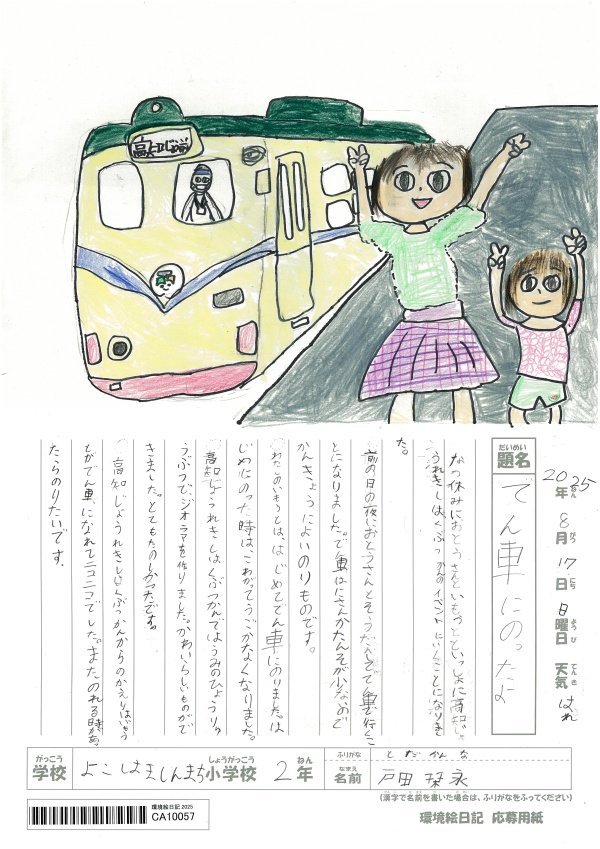 高知じょう前
2025
年ねん 8月がつ 17日にち 日曜日ようび 天気てんき はれ
だいめい
題名
でん車にのったよ
なつ休みにおとうさんといもうとといっしょに高知じょ
うれきしはくぶつかんのイベントにいくことになりまし
た。
前の日の夜におとうさんとそうだんしてでん車で行くこ
とになりました。でん車はにさんかたんそが少ないので
かんきょうによいのりものです。
わたしのいもうとは、はじめてでん車にのりました。は
じめにのった時は、こわがてうごかなくなりました。
高知じょうれきしはくぶつかんではうみのひょうりゅ
うぶつで、ジオラマを作りました。かわいらしいものがで
きました。とてもたのしかったです。
高知じょうれきしはくぶつかんからのかえりはいもう
とがでん車になれてニコニコでした。またのれる時があっ
たらのりたいです。
がっこう
学校
よこはましんまち
しょうがっこう
小学校
2年ねん
ふりがな
とだ かんな
なまえ
名前
戸田 栞永
(漢字で名前を書いた場合は、ふりがなをふってください)
環境絵日記 2025
CA10057
環境絵日記 応募用紙